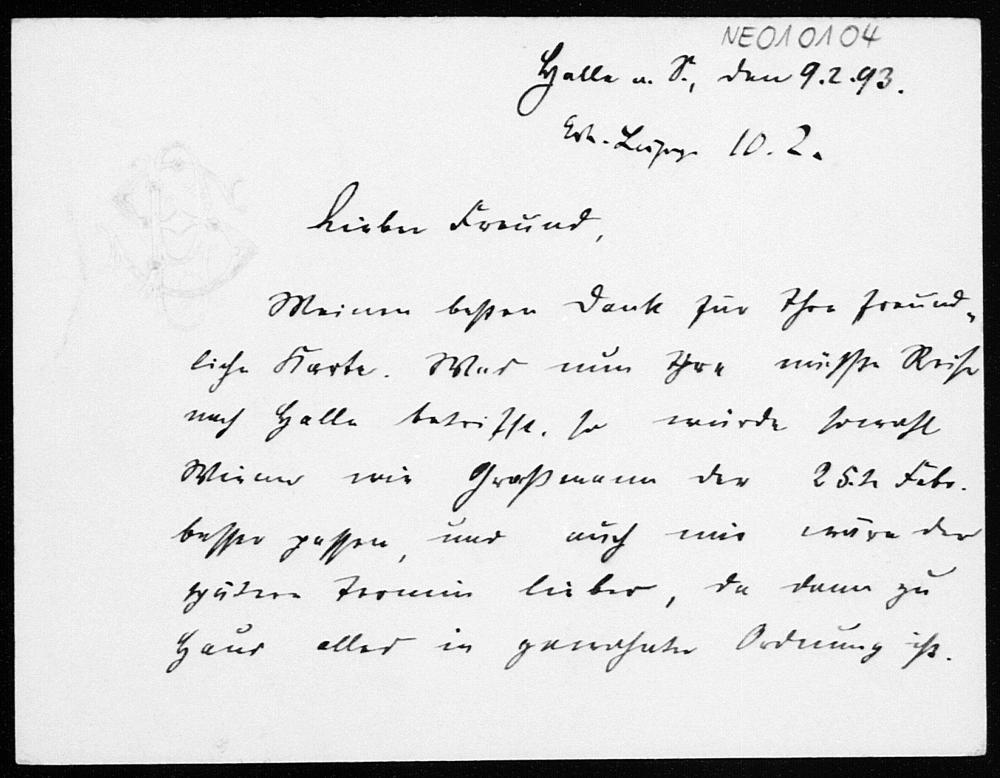 NE010104
Halle a. S., den 9.2.93.
Erh. Leipzig 10.2.
Lieber Freund,
Meinen besten Dank für Ihre freund-
liche Karte. Was nun Ihre nächste Reise
nach Halle betrifft, so würde sowohl
Wiener wie Graßmann der 25te Febr.
besser passen, und auch mir wäre der
spätere Termin lieber, da dann zu
Haus alles in gewohnter Ordnung ist.